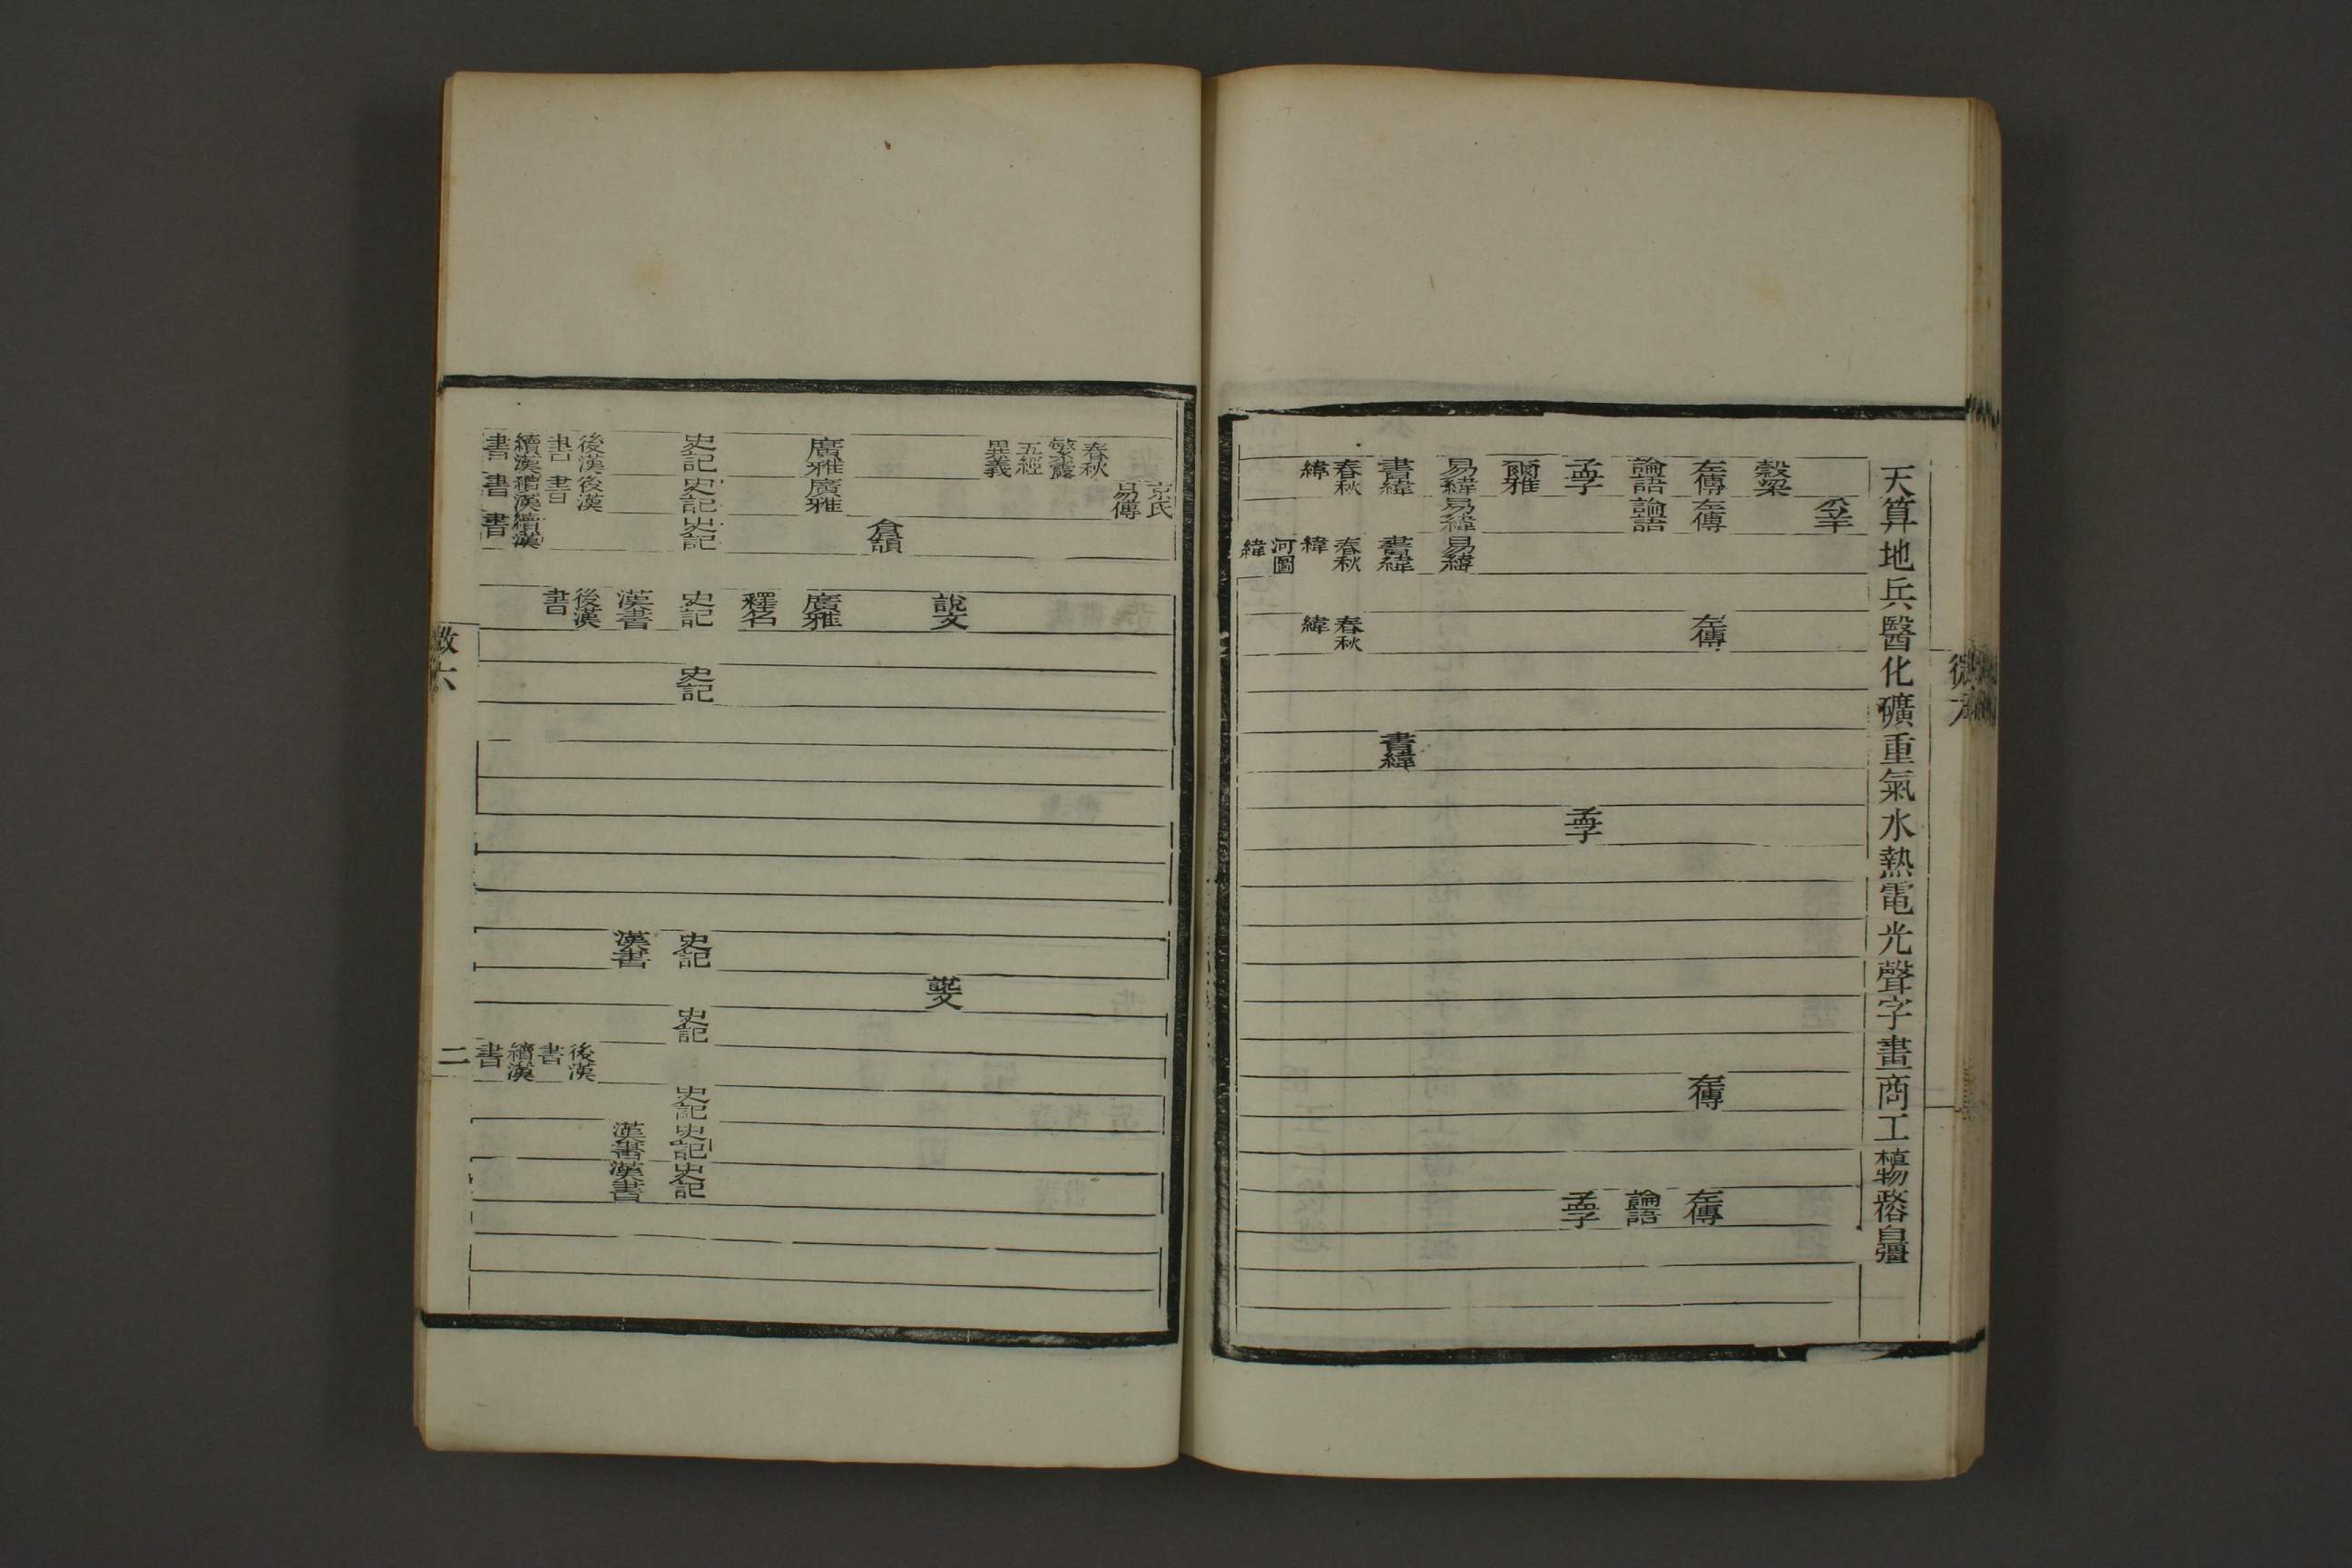 天算地兵醫化礦重氣水熱電光聲字畫商工植物政俗自彊
公羊
穀梁
左傳 左傳 左傳 左傳 左傳
論語 論語 論語
孟子 孟子 孟子
爾雅
易緯 易緯 易緯
書緯 書緯 書緯
春秋緯 春秋緯 春秋緯
河圖緯
京氏易傳
春秋繁露
五經異義
說文 說文
倉頡
廣雅 廣雅 廣雅
釋名
史記 史記 史記 史記 史記 史記 史記 史記 史記 史記
漢書 漢書 漢書 漢書
後漢書 後漢書 後漢書 後漢書
續漢書 續漢書 續漢書 續漢書
二